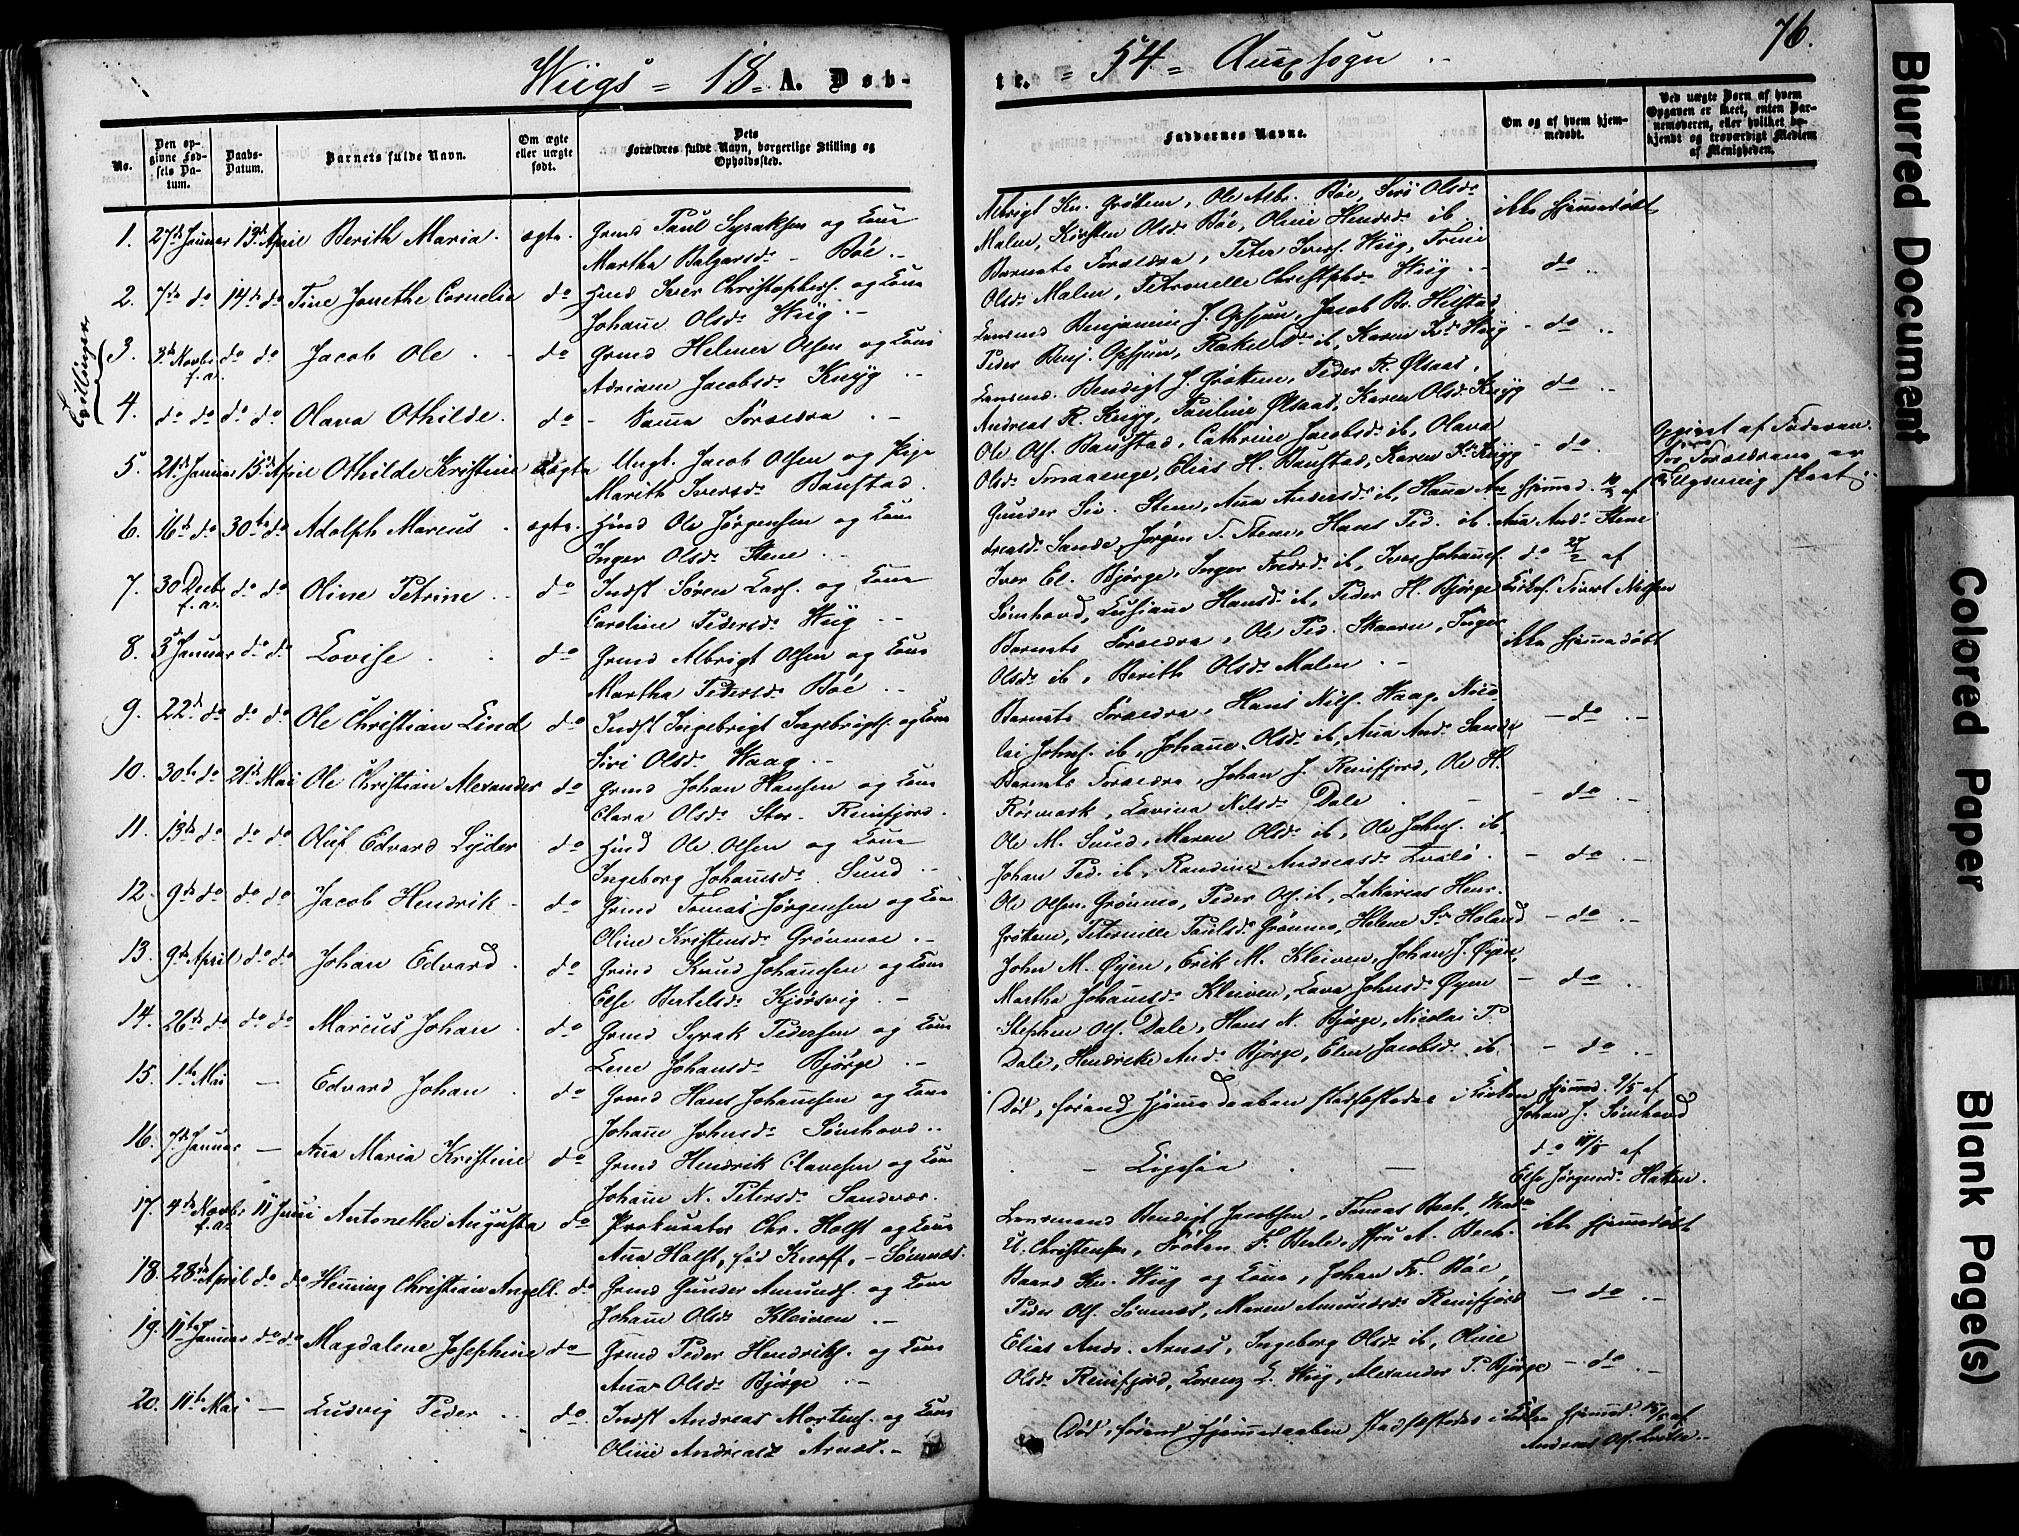 76.
Wiigs = 18 = A. Døb-
te. = 54 = Auxsogn
No.
Den op-
givne Fød-
sels Da-
tum.
Daabs-
Datum.
Barnets fulde Navn.
Om ægte
eller uægte
født.
Dets
Forældres fulde Navn, borgerlige Stilling og
Opholdssted.
Faddernes Navne.
Om og af hvem hjem-
medøbt.
Ved uægte Børn af hvem
Opgaven er skeet, enten Bar-
nemoderen, eller hvilket be-
kjendt og troværdigt Medlem
af Menigheden.
1. 27de Januar 13de April Berith Maria. ægte. Grmd Paul Syraksen og Kone
Martha Balgersdr. - Böe.
Albrigt Kn. Grötem, Ole Albr. Böe, Siri Olsdr.
Malen, Kirsten Olsdr. Böe, Oline Hendrsdr. ib.
ikke hjemmedöbt
2. 7de do 14de do Tine Janethe Cornelia do Hmd Iver Christophers. og Kone
Johanne Olsdr. Wiig.
Barnets Forældre, Peter Ivers. Wiig, Trine
Olsdr. Malen, Petronelle Christphdr. Wiig
do
Tvillinger
3. 2de Novbr. f.a. do do Jacob Ole do Grmd Helmer Olsen og Kone
Adriane Jacobsdr. Knyg
Lensmd Benjamin J. Opsjøn, Jacob Br. Helstad
Peder Benj. Opsjøn, Rakel Dr. ib, Karen Kr. Wiig
do
4. do do do do Olava Othilde. do - Samme Forældre
Lensmd. Bendigt J. Grötem, Peder R. Ølsaas,
Andreas R. Knyg, Pauline Ølsaas, Karen Olsdr. Knyg
do
5. 21de Januar 15de April Othilde Kristine uægte Ungk. Jacob Olsen og Pige
Marith Iversdr. Baustad.
Ole Ols. Baustad, Cathrine Jacobsdr. ib, Olava
Olsdr. Smaaenge, Elias H. Baustad, Karen Kr. Knyg
do
Opgivet af Faderen.
For Forældrene er
Tillysning skeet
6. 16de do 30te do Adolph Marcus ægte. Hmd Ole Jörgensen og Kone
Inger Olsdr. Stene
Gunder Siv. Stene, Ana Andersdr. ib, Hanna An-
dreasdr. Sande, Jörgen T. Stene, Hans Ped. ib.
hjmmd. af
Ana Andr. Stene
7. 30 Decbr. f.a. do do Oline Petrine do Indst Sören Lars. og Kone
Caroline Pedersdr. Wiig
Iver El. Björge, Inger Tredsdr. ib, Iver Johans.
Sömhovd, Lusianne Hansdr. ib, Peder H. Björge
do 27/2 af
Kirkes. Sivert Nilsen
8. 3de Januar do do Lovise do Grmd Albrigt Olsen og Kone
Martha Pedersdr. Böe
Barnets Forældre, Ole Ped. Skaaren, Inger
Olsdr. ib, Berith Olsdr. Malen
ikke hjemmedöbt
9. 22de do do do Ole Christian Lind do Indst Ingebrigt Ingebrigts. og Kone
Siri Olsdr. Haag
Barnets Forældre, Hans Nils. Haag, Nico-
lai Johns. ib, Johanne Olsdr. ib, Ana Andr. Sande
do
10. 30te do 21de Mai Ole Christian Alexander do Grmd Johan Hansen og Kone
Clara Olsdr. Stor-Reinfjord.
Barnets Forældre, Johan J. Reinfjord, Ole H.
Rörmark, Lavina Nilsdr. Dale
do
11. 13de do do do Oluf Edvard Lyder do Hmd Ole Olsen og Kone
Ingeborg Johansdr. Sund
Ole M. Sund, Maren Olsdr. ib, Ole Johns. ib,
Johan Ped. ib, Randine Andreasdr.
do
12. 9de do do do Jacob Hendrik do Grmd Tomas Jörgensen og Kone
Oline Kristensdr. Grönmoe
Ole Olsen Grönmo, Peder Ols. ib, Zakarias Henr.
Grötem, Peternille Paulsdr. Grönmo, Helene Sr. Holand
do
13. 9de April do do Johan Edvard do Grmd Knud Johansen og Kone
Else Bertelsdr. Kjörsvig
John M. Øyen, Erik M. Kleiven, Johan J. Øyen,
Martha Johansdr. Kleiven, Lava Johnsdr. Øyen
do
14. 26de do do do Marcus Johan do Grmd Syrak Pedersen og Kone
Lene Johansdr. Björge
Stephen Ols. Dale, Hans N. Björge, Nicolai P.
Dale, Hendrike Andr. Björge, Elen Jacobsdr. ib.
do
15. 1te Mai - Edvard Johan do Grmd Hans Johansen og Kone
Johanne Johnsdr. Sömhovd
Död, forend Hjemmedaaben stadfæstedes i Kirken
hjmmd. 9/5 af
Johan J. Sömhovd
16. 7de Januar - Ana Maria Kristine do Grmd Hendrik Clausen og Kone
Johanne N. Petersdr. Sandvær.
- Ligesaa -
do af
Else Jörgensdr. Hatten.
17. 4de Novbr. f.a. 11te Juni Antonethe Augusta do Prokurator Chr. Holst og Kone
Ana Holst, fød Knoff, - Sömnes.
Lensmand Bendigt Jacobsen, Tomas Bech,
U. Christensen, Fröken F. Berle, Fru A. Bech
ikke hjemmedöbt
18. 28de April do do Henning Christian Angell. do Grmd Gunder Amunds. og Kone
Johanne Olsdr. Kleiven
Baard Kn. Wiig og Kone, Johan Fr. Böe,
Peder Ols. Sömnes, Maren Amundsdr. Reinfjord
do
19. 11te Januar do do Magdalene Josephine do Grmd Peder Hendriks. og Kone
Ana Olsdr. Björge
Elias Andr. Arnes, Ingeborg Olsdr. ib, Oline
Olsdr. Reinfjord, Lorenz L. Wiig, Alexander P. Björge
do
20. 11te Mai - Ludvig Peder do Indst Andreas Mortens. og Kone
Oline Andreasdr. Arnes.
Död, forend Hjemmedaaben stadfæstedes i Kirken
hjmmd. 15/5 af
Andreas Ols.
Blurred Document
Colored Paper
Blank Page(s)